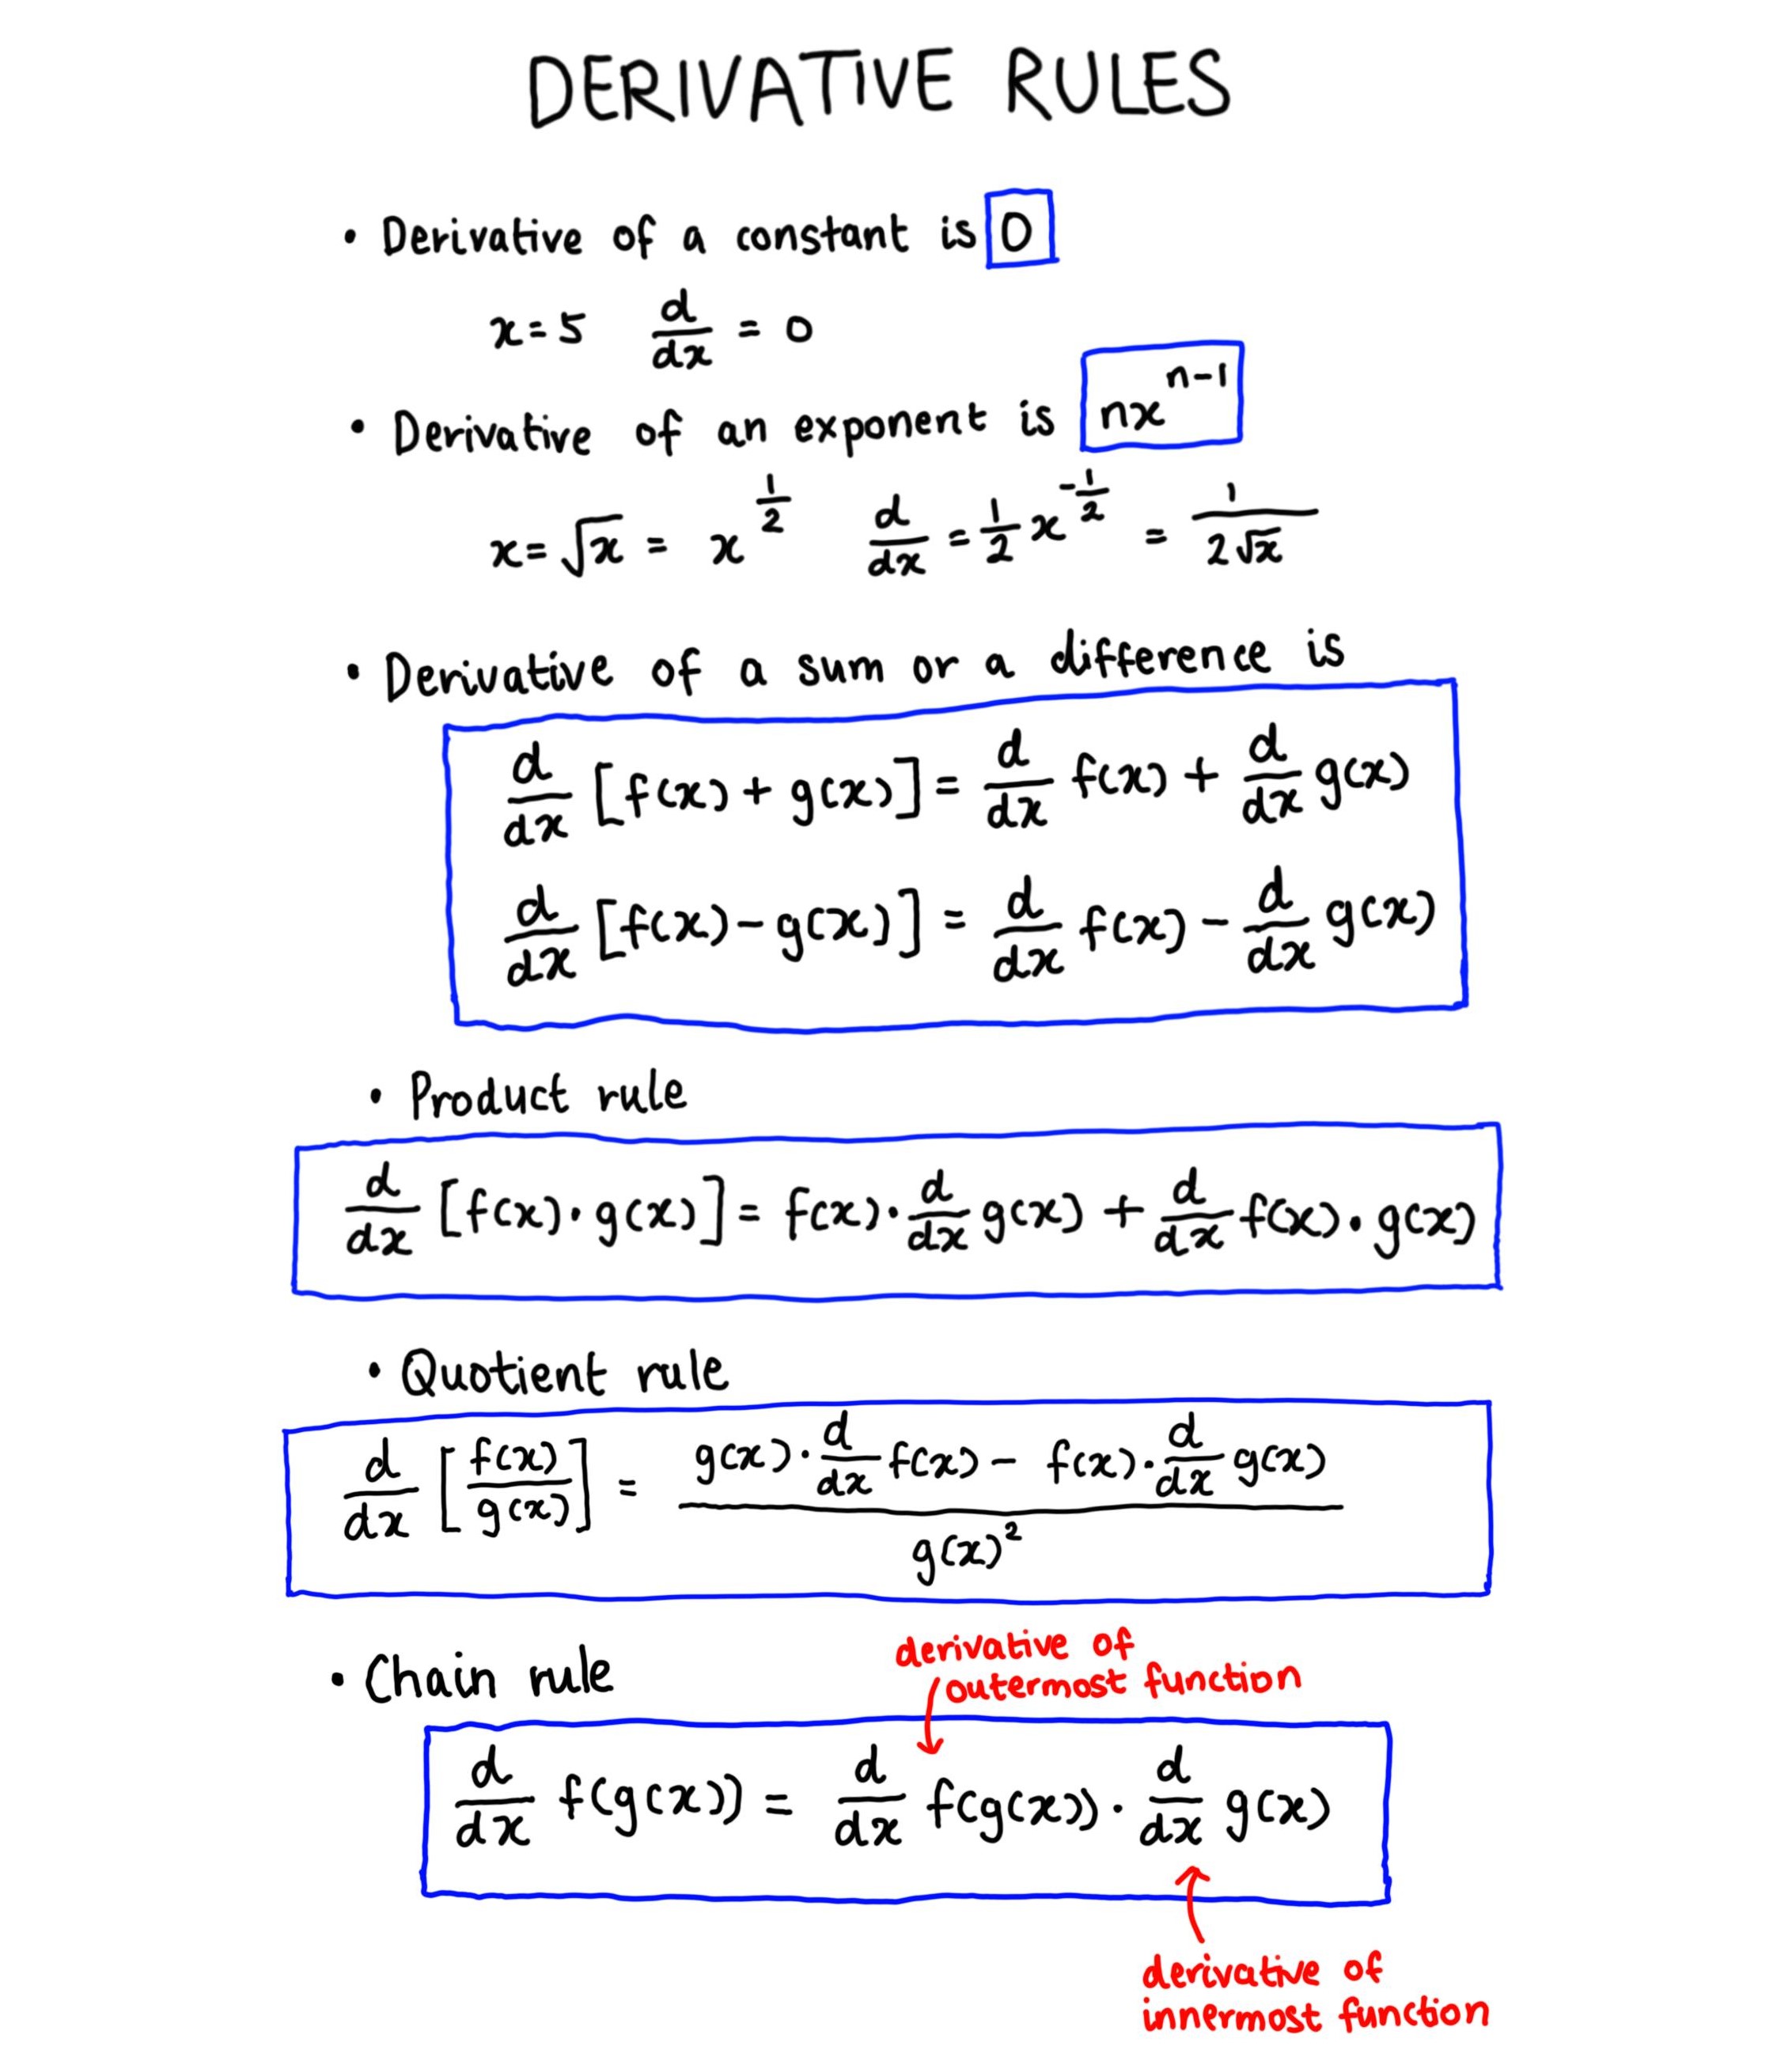 DERIVATIVE RULES
• Derivative of a constant is 0
x = 5 d/dx = 0
• Derivative of an exponent is nx^(n-1)
x = √x = x^(1/2) d/dx = 1/2 x^(-1/2) = 1/(2√x)
• Derivative of a sum or a difference is
d/dx [f(x) + g(x)] = d/dx f(x) + d/dx g(x)
d/dx [f(x) - g(x)] = d/dx f(x) - d/dx g(x)
• Product rule
d/dx [f(x) · g(x)] = f(x) · d/dx g(x) + d/dx f(x) · g(x)
• Quotient rule
d/dx [f(x)/g(x)] = (g(x) · d/dx f(x) - f(x) · d/dx g(x))/g(x)²
• Chain rule
derivative of
outermost function
d/dx f(g(x)) = d/dx f(g(x)) · d/dx g(x)
derivative of
innermost function